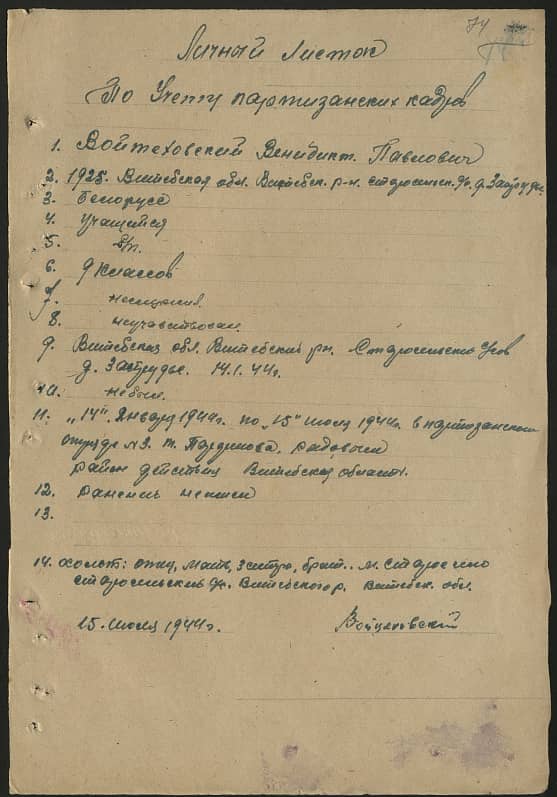 74
Личный Листок
По Учету партизанских кадров
1. Войтеховский Венидикт. Павлович
2. 1925. Витебская обл. Витебск. р-н. д.
3. Белорусс
4. Учащийся
5. б/п.
6. 9 классов
7. неслужил.
8. неучавствовал
9. Витебская обл. Витебский рн.
д. Заструдье. 14.1.44г.
10. небыл.
11. „14". Января 1944г. по „15" июля 1944г. в партизанском
отряде №3. т. рядовым
район действия Витебская область.
12. ранений неимел
13.
14. холост: отец, мать, 3 сестры, брат. м.
Витебского р. Витебск. обл.
15. июля 1944г. Войцеховский